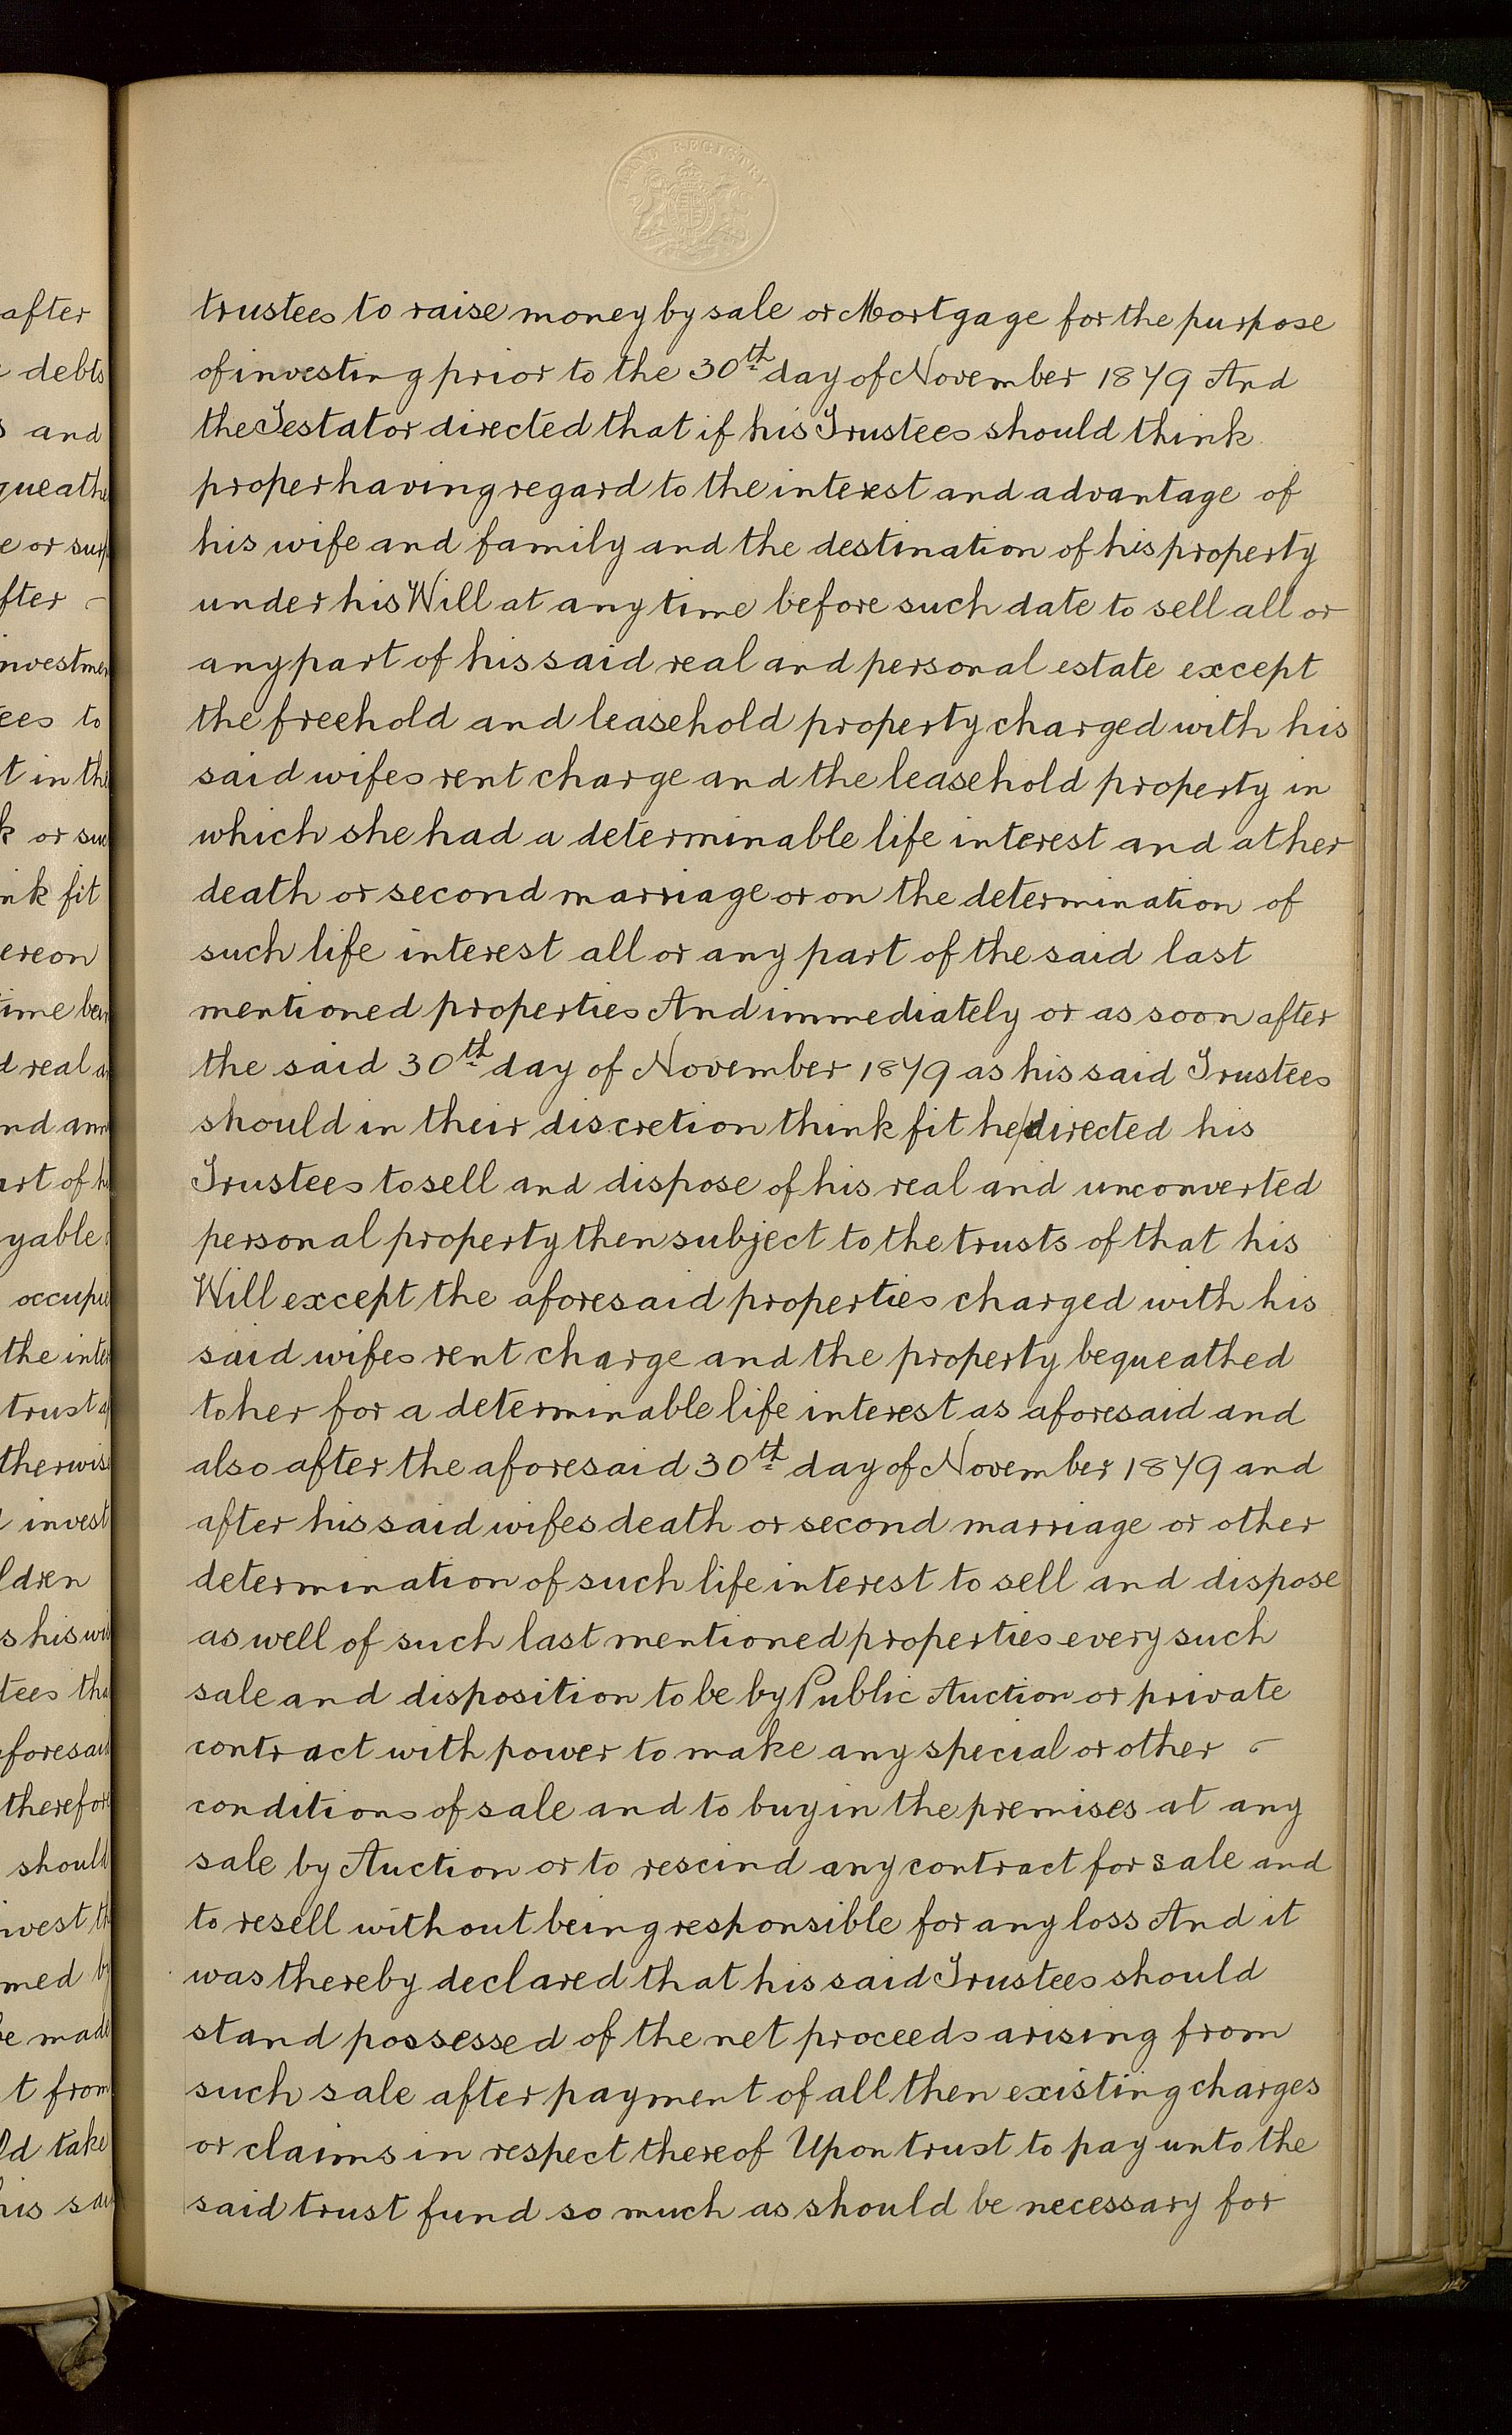 LAND REGISTRY
trustees to raise money by sale or Mortgage for the purpose
of investing prior to the 30th day of November 1879 And
the Testator directed that if his Trustees should think
proper having regard to the interest and advantage of
his wife and family and the destination of his property
under his Will at any time before such date to sell all or
any part of his said real and personal estate except
the freehold and leasehold property charged with his
said wifes rent charge and the leasehold property in
which she had a determinable life interest and at her
death or second marriage or on the determination of
such life interest all or any part of the said last
mentioned properties And immediately or as soon after
the said 30th day of November 1879 as his said Trustees
should in their discretion think fit he/directed his
Trustees to sell and dispose of his real and unconverted
personal property then subject to the trusts of that his
Will except the aforesaid properties charged with his
said wifes rent charge and the property bequeathed
to her for a determinable life interest as aforesaid and
also after the aforesaid 30th day of November 1879 and
after his said wifes death or second marriage or other
determination of such life interest to sell and dispose
as well of such last mentioned properties every such
sale and disposition to be by Public Auction or private
contract with power to make any special or other
conditions of sale and to buy in the premises at any
sale by Auction or to rescind any contract for sale and
to resell without being responsible for any loss And it
was thereby declared that his said Trustees should
stand possessed of the net proceeds arising from
such sale after payment of all then existing charges
or claims in respect thereof Upon trust to pay unto the
said trust fund so much as should be necessary for